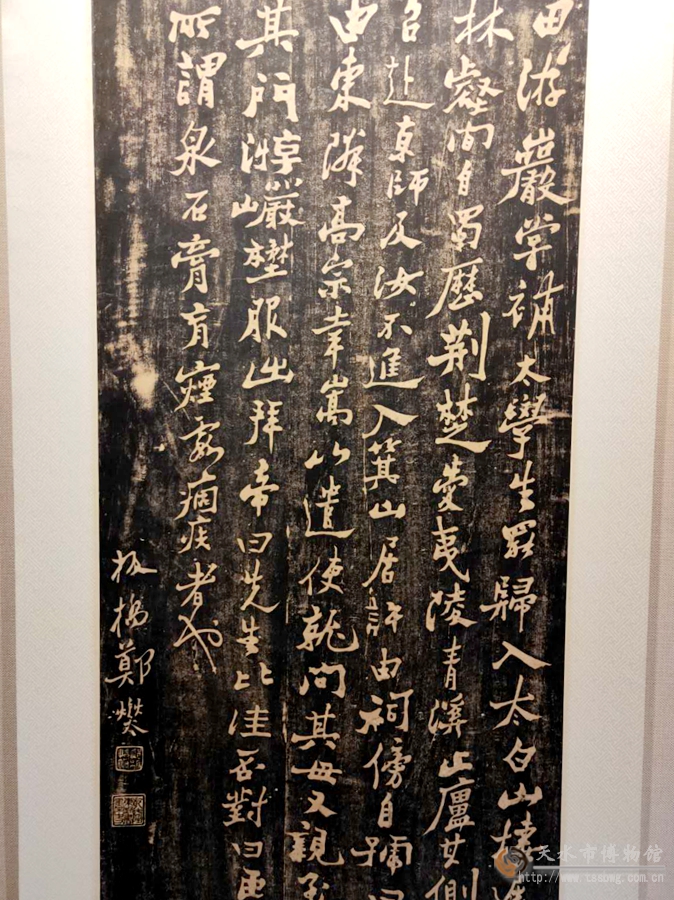 田游巖学補太學生罷歸入太白山棲遲
林壑間自蜀歷荆楚愛夷陵青溪止廬其側
召赴京師及汝不進入箕山居許由祠傍自號曰
由東隣高宗幸嵩山遣使就問其母又親至
其門游巖埜服出拜帝曰先生比佳否對曰
所謂泉石膏肓煙霞痼疾者也
板橋鄭燮
天水市博物馆
http://www.tssbwg.com.cn